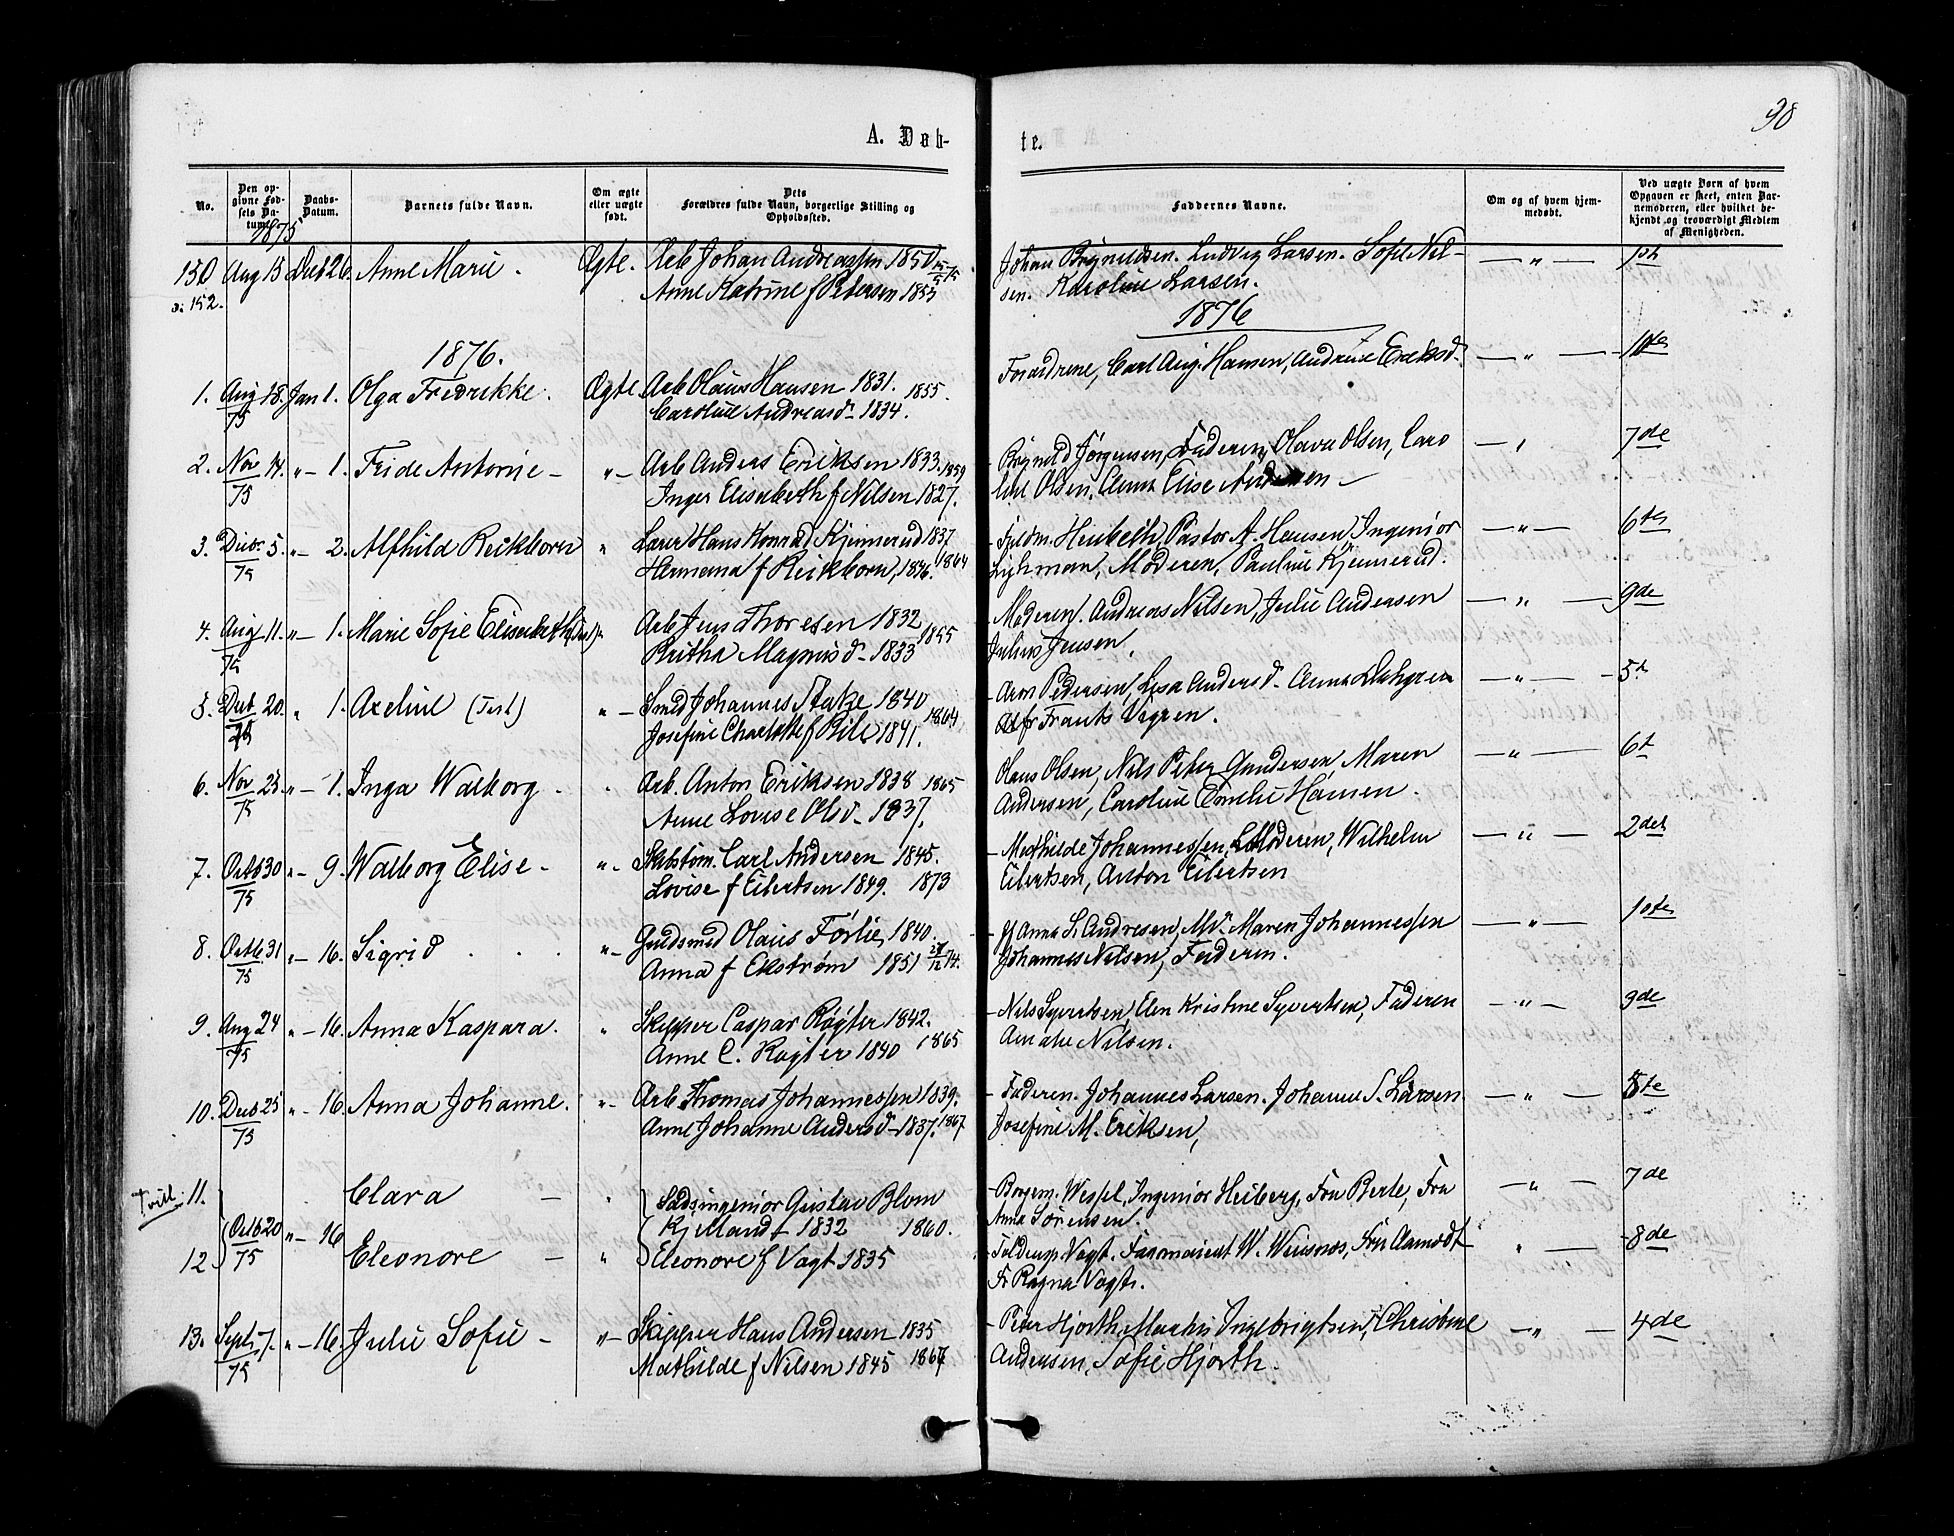 98
A. Døb-
te.
No.
Den op-
givne Fød-
sels Da-
tum.
Daabs-
Datum.
Barnets fulde Navn.
Om ægte
eller uægte
født.
Dets
Forældres fulde Navn, borgerlige Stilling og
Opholdssted.
Faddernes Navne.
Om og af hvem hjem-
medøbt.
Ved uægte Børn af hvem
Opgaven er skeet, enten Bar-
nemoderen, eller hvilket be-
kjendt og troværdigt Medlem
af Menigheden.
1875
150 Aug 15 Decb 26. Anne Marie. Ægte. Arb Johan Andreassen 1850
ɔ: 152. Anne Katrine f Petersen 1853
Johan Brynildsen. Ludvig Larsen. Sofie Nil-
sen. Karoline Larsen.
1876
1876.
1. Aug 18. Jan 1. Olga Fredrikke. Ægte. Arb Olaus Hansen 1831. 1855.
75 Caroline Andreasd. 1834.
Forældrene, Carl Aug. Hansen, Andrine Eriksd.
2. Nov 14. " - 1. Fride Antonie - " - Arb Anders Eriksen 1833. 1859
75 Inger Elisabeth f Nilsen 1827.
- Brynild Jørgensen, Faderen, Olava Olsen, Caro
line Olsen, Anna Elise Andersen - 7de
3. Decbr. 5. " - 2. Alfhild Reikborn " Lærer Hans Konrad Kjennerud 1837
75 Hermana f Reikborn, 1846. 1864
- Fuldm. Heubeth, Pastor A. Hansen, Ingeniør
Lyhman, Moderen, Pauline Kjennerud. - " - 6te
4. Aug 11. " - 1. Marie Sofie Elisabeth Arb Jens Thoresen 1832
75 Britha Magnusd - 1833 1855
- Moderen. Andreas Nilsen, Julie Andersen
Julius Jensen. - " - 9de
5. Decb 20. " 1. Axeline " - Smed Johannes Stake 1840
75 Josefine Charlotte f Bile 1841. 1864
- Aron Pedersen, Lisa Andersd. Anna Dahgren
Frants Vigren. - " - 5t
6. Nov 23. " - 1. Inga Walborg. Arb. Anton Eriksen 1838 1865
75 Anne Lovise Olsd - 1837.
Olaus Olsen, Nils Peter Gundersen Maren
Andersen, Caroline Emelie Hansen. - " - 6t
7. Octb 30 " - 9. Walborg Elise - " - Skibstøm. Carl Andersen 1845.
75 Lovise f Eilertsen 1849. 1873
- Mathilde Johannessen, Moderen, Wilhelm
Eilertsen, Anton Eilertsen - " - 2det
8. Octb. 31 " - 16. Sigrid . . . " - Guldsmed Olaus Førlie, 1840.
75 Anna f Ekstrøm 1851 27/12 74.
Anna S. Andresen, Maren Johannessen
Johannes Nilsen, Faderen. - " - 10te
9. Aug 24 " - 16. Anna Kaspara. " Skipper Caspar Røgter 1842.
75 Anne C. Røgter 1840 1865
- Nils Syvertsen, Elen Kristine Syvertsen, Faderen
Amalie Nilsen. - " - 9de
10. Decb 25 " - 16. Anna Johanne. " - Arb Thomas Johannessen 1839.
75 Anne Johanne Andersd - 1837. 1867
- Faderen. Johannes Larsen. Johanne S. Larsen
Josefine M. Eriksen, - " - 8te
Tvill. 11. Clara - " Stadsingeniør Gustav Blom
Octb 20 " - 16 Kj Mand 1832 1860.
12 75 Eleonore - " Eleonore f Vogt 1835
- Borgem. Wessel, Ingeniør Heiberg, Fru Berle, Fru
Anna Sørensen. - " - 7de
- Toldinsp. Vogt. Farmaceut W. Frn Aamodt - " - 8de
Fr Ragna Vogt.
13. Septr. 7. " - 16. Julie Sofie - " - Skipper Hans Andersen 1835
75 Mathilde f Nilsen 1845 1867
- Peter Hjorth, Mathis Ingebrigtsen, Christine
Andersen, Sofie Hjorth. - " - 4de